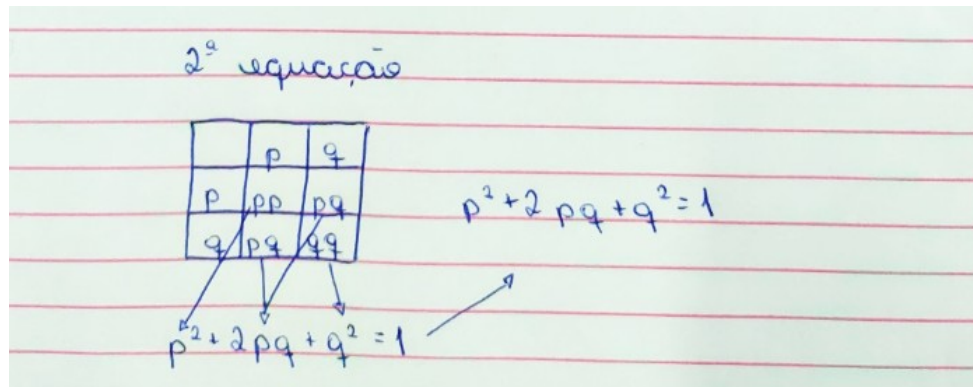 2ª equação
p q
p pp pq
q pq qq
p² + 2 pq + q² = 1
p² + 2pq + q² = 1